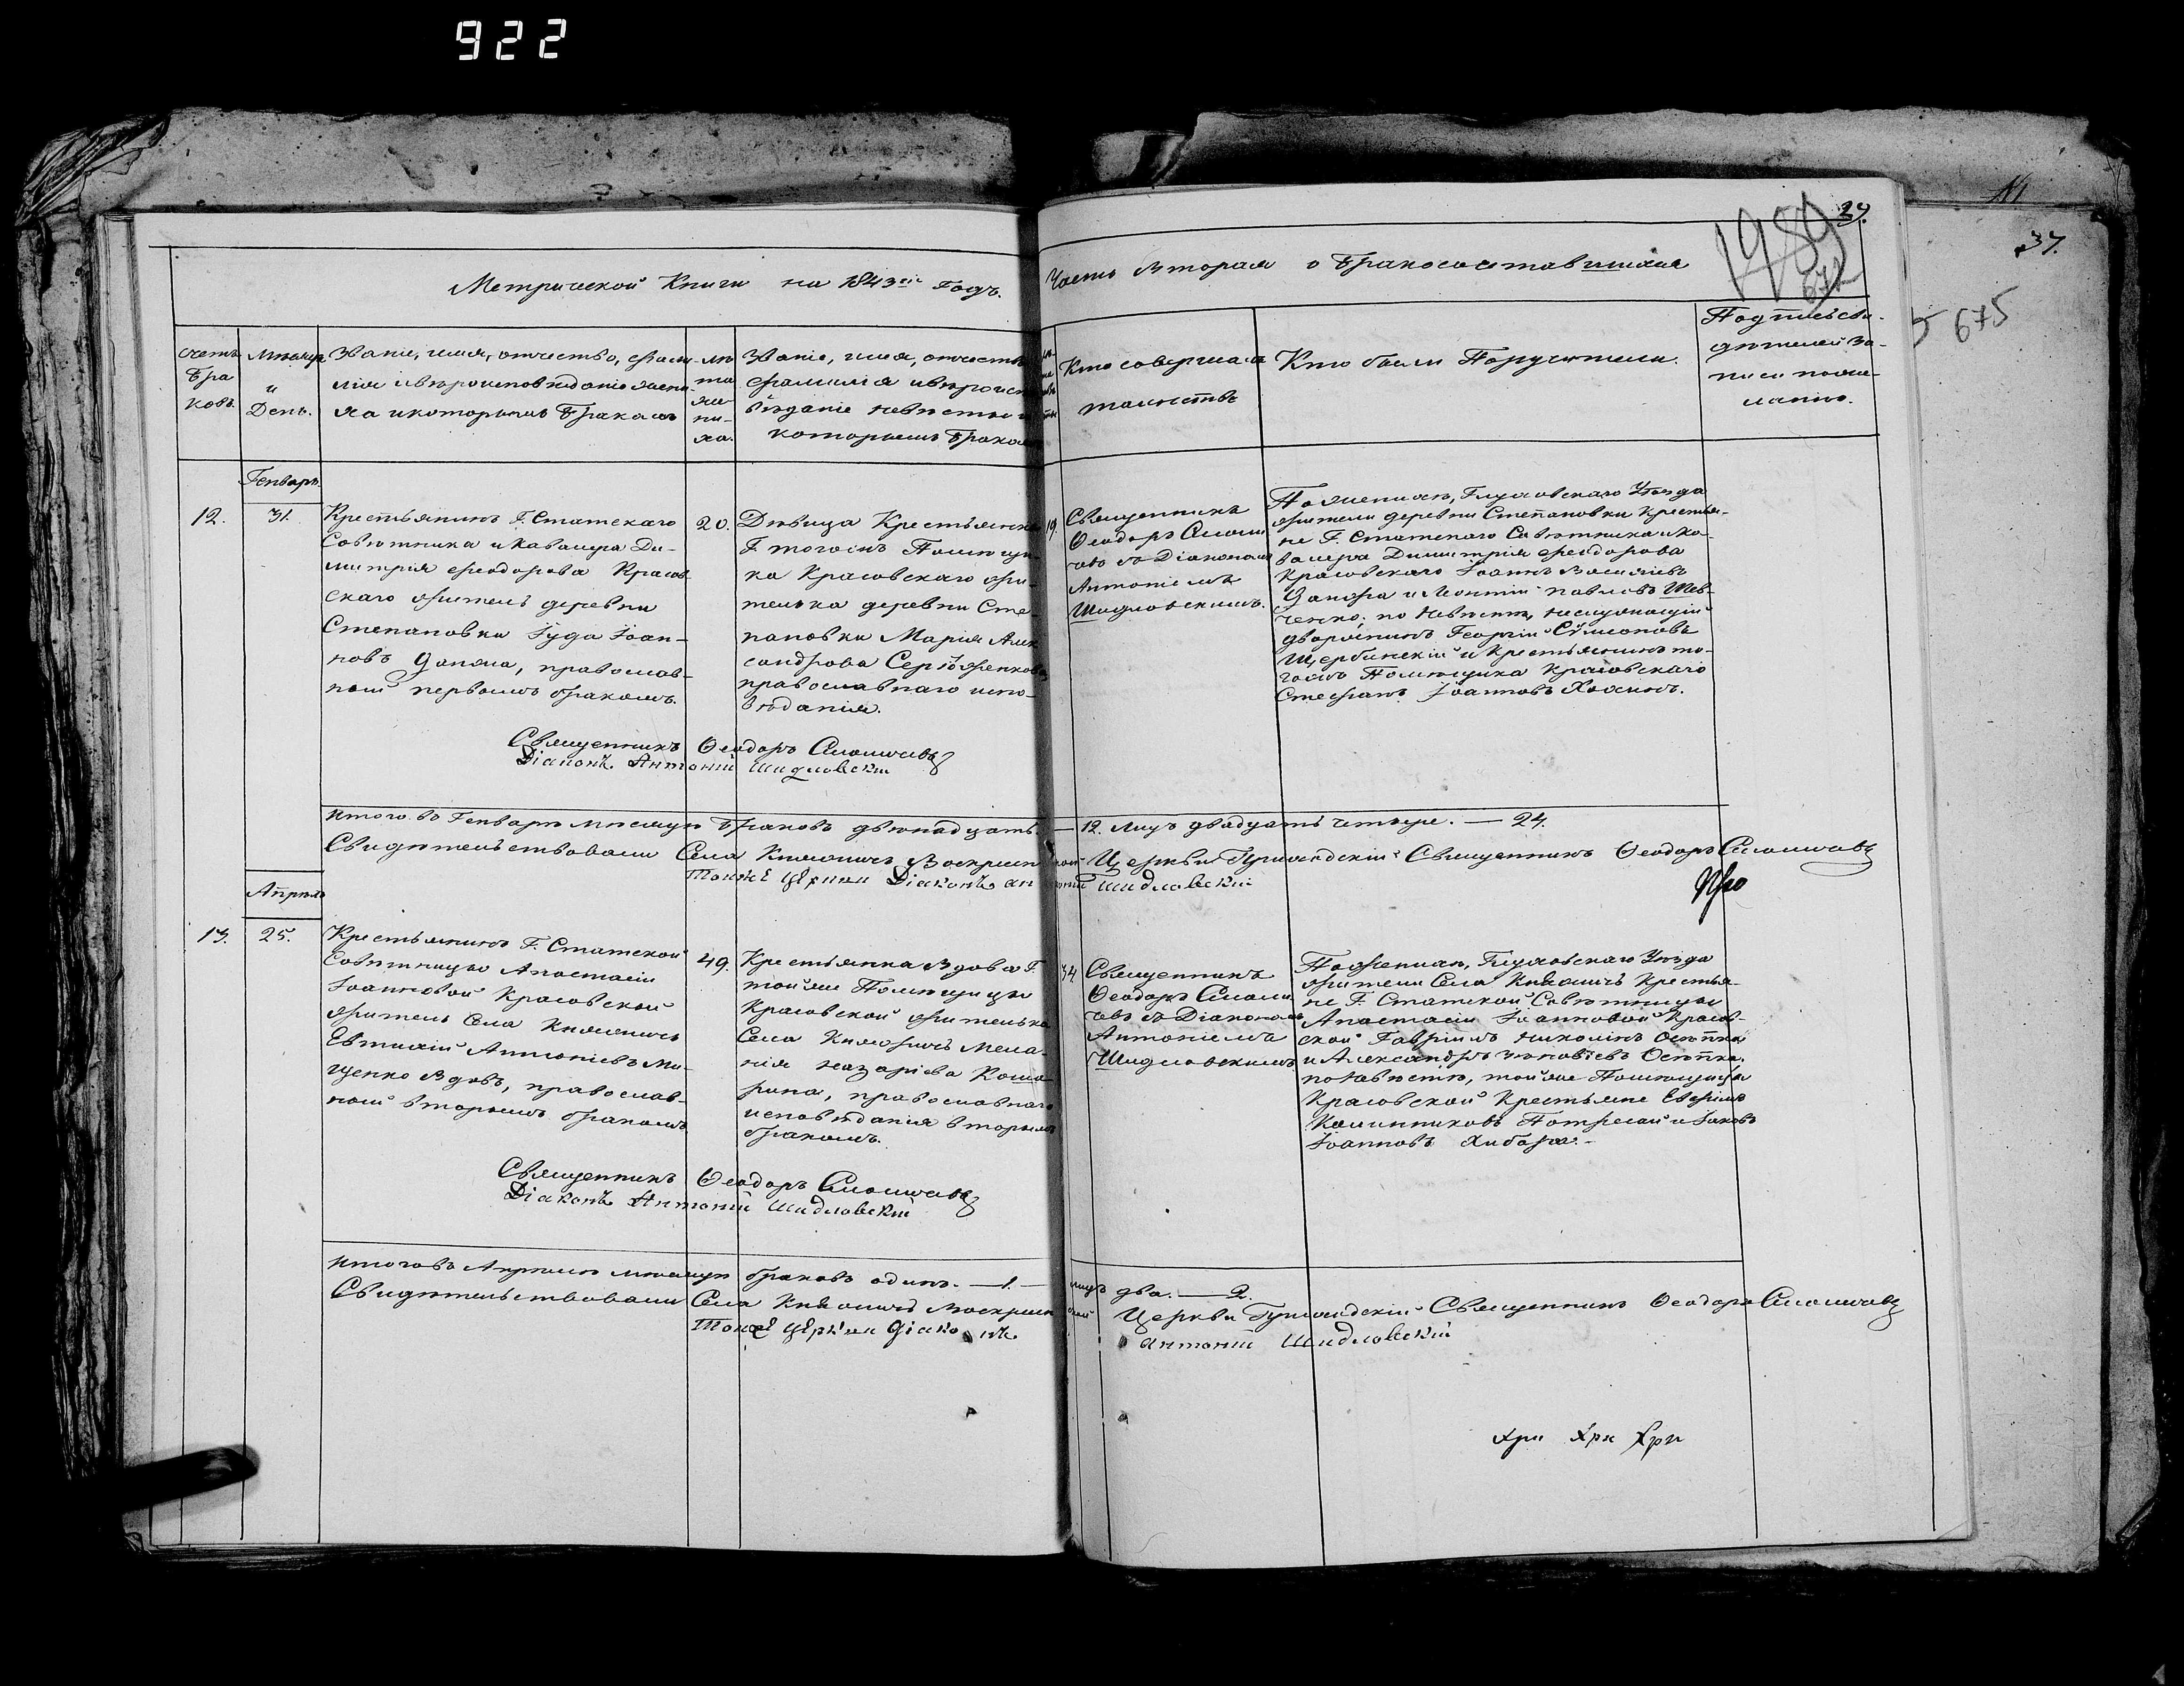 922
29.
37.
1989
671
675
Метрической Книги на 1843й Годъ.
Часть Вторая о бракосочетавшихся
Счетъ бра ковъ.
Мѣсяцъ и День.
Званіе, имя, отчество, фами-
лія и вѣроисповѣданіе жени-
ха и которымъ бракомъ
лѣ та же ни- ха.
Званіе, имя, отчество
фамилія и вѣроиспо
вѣданіе невѣсты и
которымъ бракомъ
Кто совершалъ
таинство
Кто были Поручители.
Подпись сви-
дѣтелей за-
писи по же-
ланію.
Генварь
12.
31.
Крестьянинъ Г. Статскаго
Совѣтника и Кавалера Ди-
митрія Феодорова Красов
скаго житель деревни
Степановки Іуда Іоан-
новъ Цапка, православ-
ный первымъ бракомъ.
20.
Дѣвица Крестьянка
Г. тогожъ Помѣщи-
ка Красовскаго жи-
телька деревни Сте-
пановки Марія Алек
сандрова
православнаго испо-
вѣданія.
19.
Священникъ
Феодоръ
съ Діакономъ
Антоніемъ
Шидловскимъ.
По женихѣ, Глуховскаго Уѣзда
жители деревни Степановки Крестья-
не Г. Статскаго Совѣтника и Ка-
валера Димитрія Феодорова
Красовскаго Іоаннъ Василіевъ
и Леонтій Павловъ Шев-
ченко; по невѣстѣ, неслужащій
дворянинъ Георгій Сѵмеоновъ
Щербинскій и Крестьянинъ то-
гожъ Помѣщика Красовскаго
Стефанъ Іоанновъ
Священникъ Феодоръ
Діаконъ Антоній Шидловскій
Итого въ Генварѣ мѣсяцѣ браковъ двенадцать. — 12. Лицъ двадцать четыре. — 24.
Свидѣтельствовали Села Княжичъ Воскресенской Церкви Священникъ Феодоръ
Тоиже Церкви Діаконъ Антоній Шидловскій
Апрѣль
13.
25.
Крестьянинъ Г. Статской
Совѣтницы Анастасіи
Іоанновой Красовской
житель Села Княжичъ
Евтихій Антоніевъ Ми-
щенко вдовъ, православ-
ный вторымъ бракомъ
49.
Крестьянка Вдова Г.
той же Помѣщицы
Красовской жителька
Села Княжичъ Мела-
нія Назаріева
православнаго
исповѣданія вторымъ
бракомъ.
34
Священникъ
Феодоръ
съ Діакономъ
Антоніемъ
Шидловскимъ
По женихѣ, Глуховскаго Уѣзда
жители Села Княжичъ Крестья-
не Г. Статской Совѣтницы
Анастасіи Іоанновой Красов-
ской Гавріилъ
и Александръ Зиновіевъ
по невѣстѣ, той же Помѣщицы
Красовской Крестьяне Евфимъ
Калинниковъ и Іаковъ
Іоанновъ
Священникъ Феодоръ
Діаконъ Антоній Шидловскій
Итого въ Апрѣлѣ мѣсяцѣ браковъ одинъ. — 1. — лицъ два. — 2.
Свидѣтельствовали Села Княжичъ Воскресенской Церкви Священникъ Феодоръ
Тоиже Церкви Діаконъ Антоній Шидловскій
Хри Хри Хри